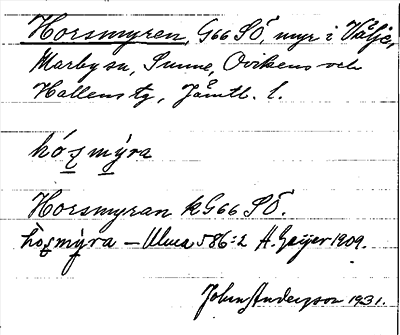 Horsmyren, G66 SÖ, myr i Välje,
Marby sn, Sunne, Ovikens och
Hallens tg, Jämtl. l.
hóʂmýra
Horsmyran kG66 SÖ.
hòʂmýra – Ulma 586:2 A. Geijer 1909.
John Anderson 1931.